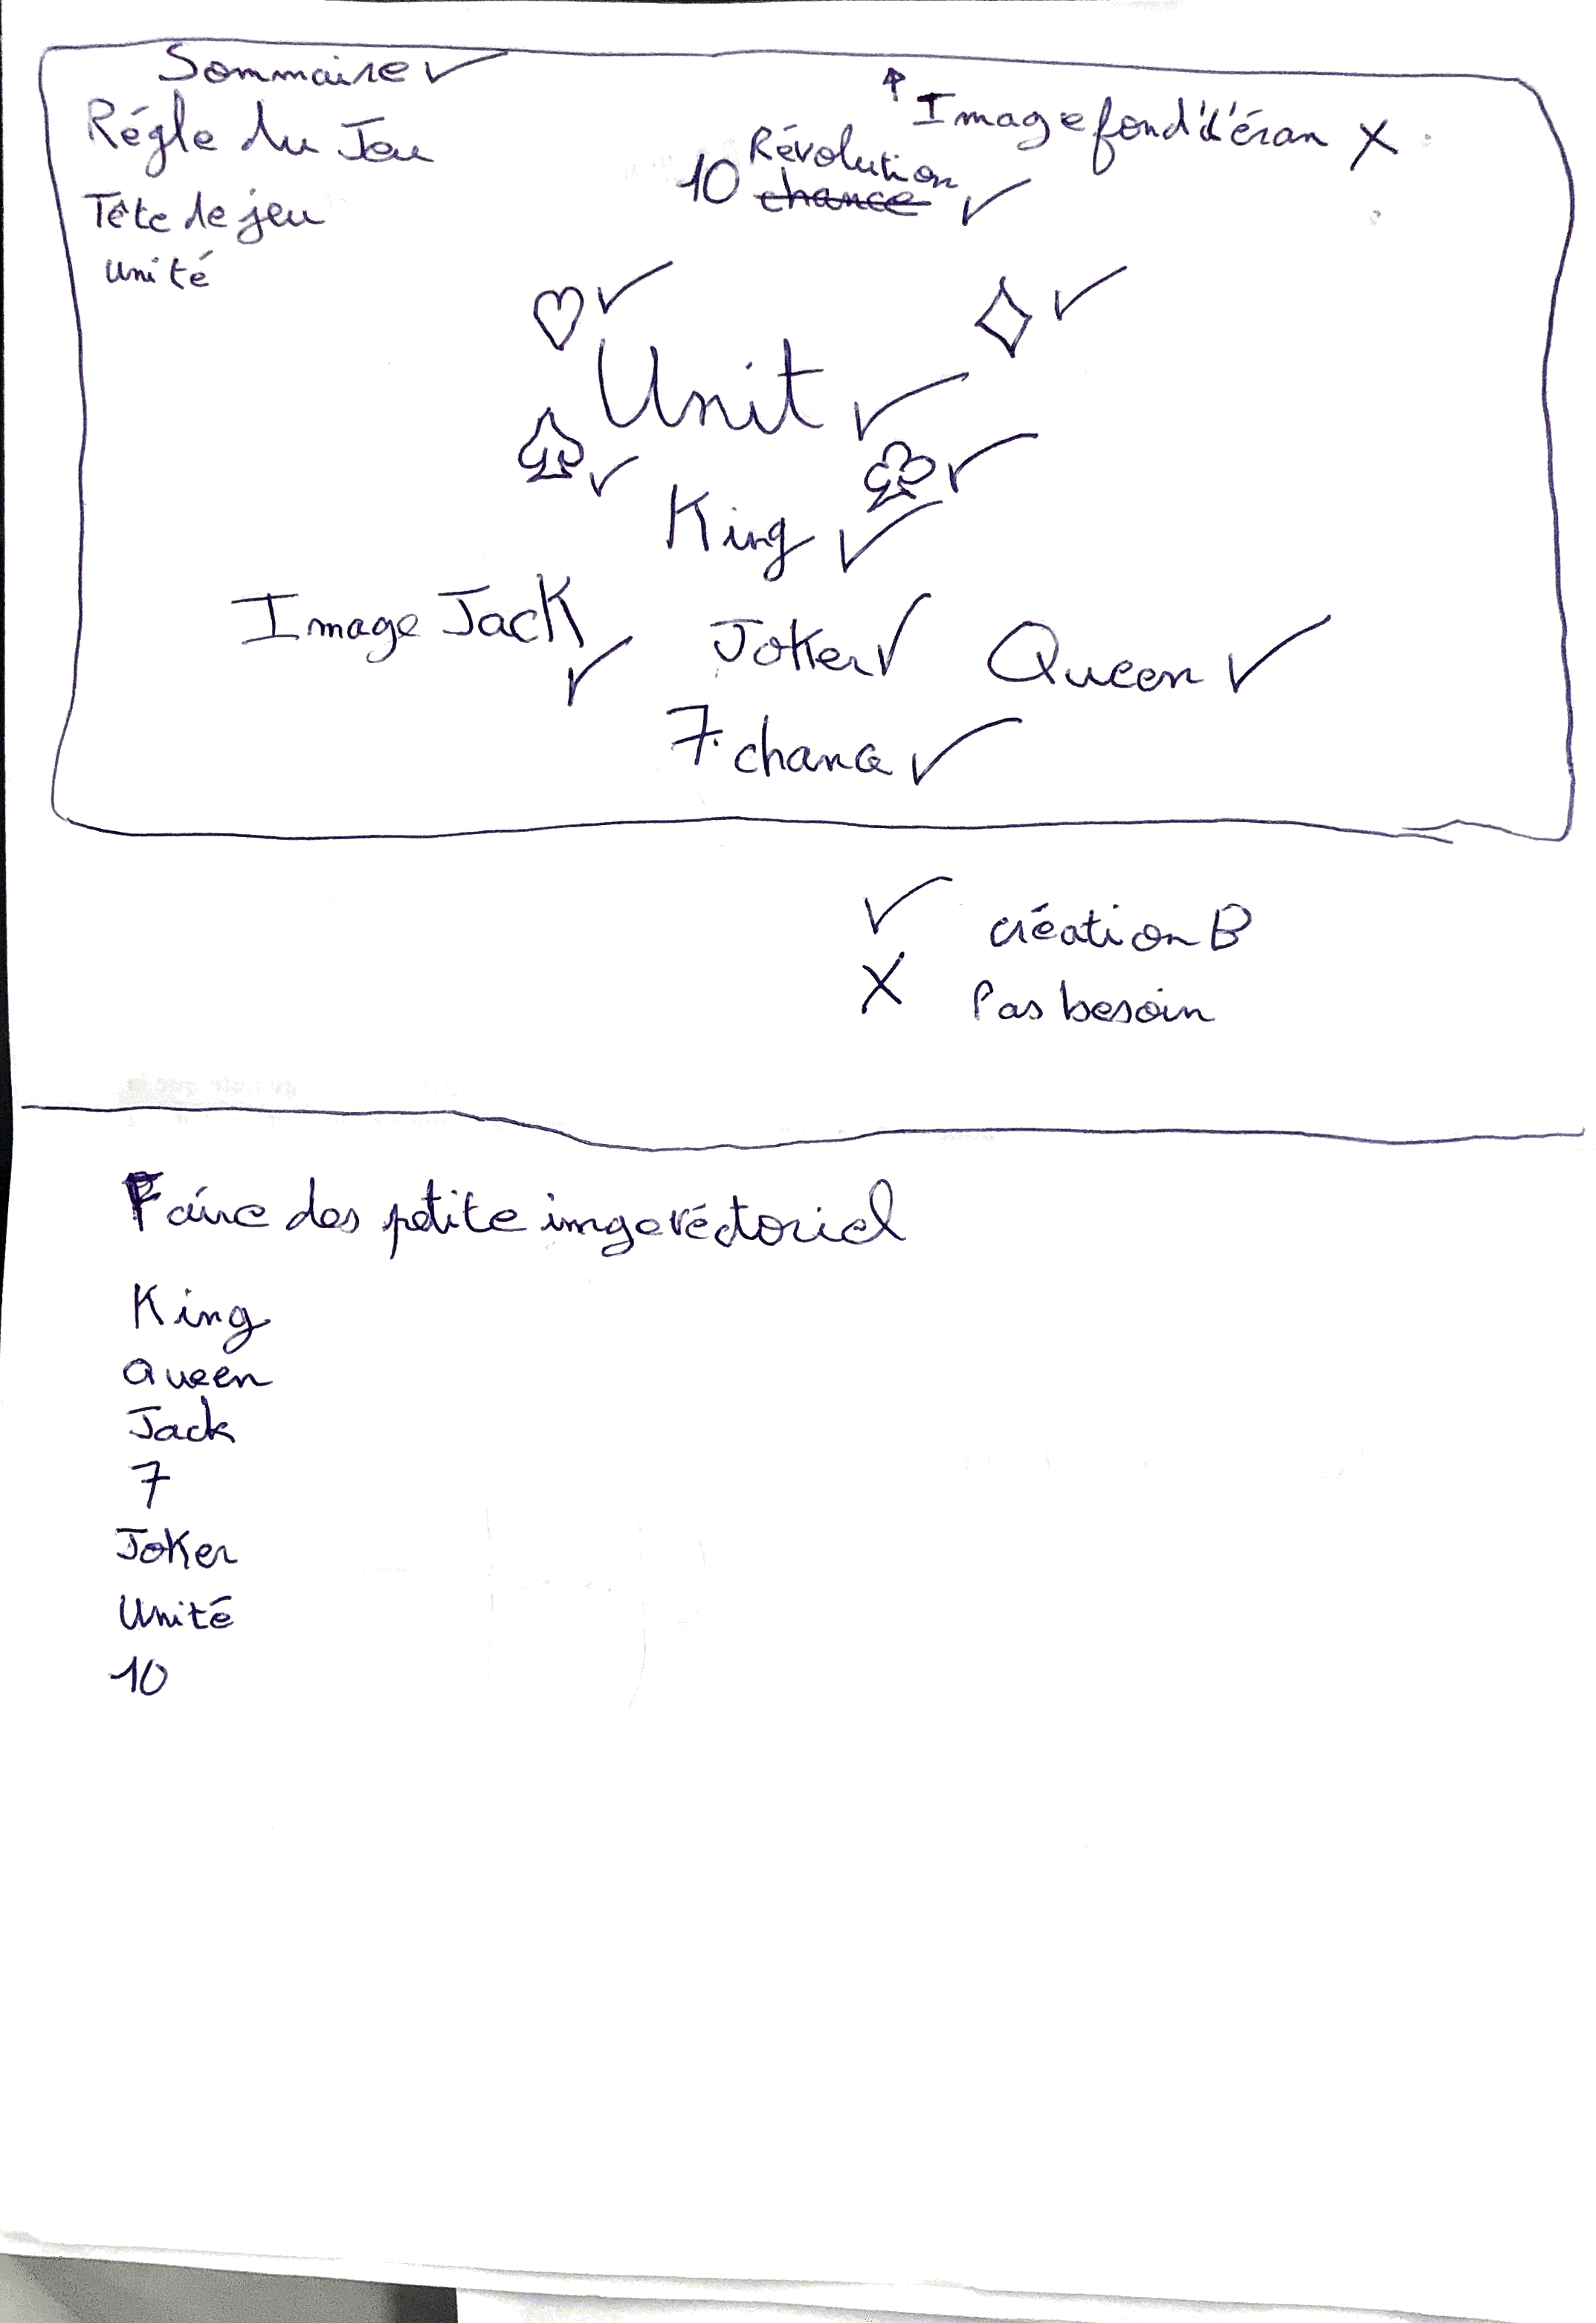 Sommaire ✓
Régle du Jeu
Tête de jeu
Unité
Image fond d'éran X
10 Révolution ~~chance~~ ✓
♡ ✓ ◇ ✓
Unit ✓
♤ ✓ ♧ ✓
King ✓
Image Jack ✓
Joker ✓
Queen ✓
7. chance ✓
✓ création B
X Pas besoin
Faire des petite imgevéctoriel
King
Queen
Jack
7
Joker
Unité
10